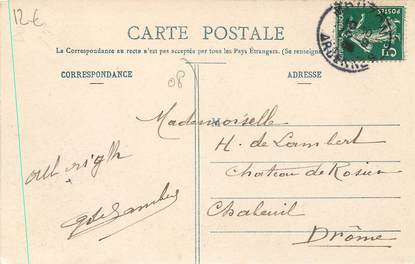 12€
CARTE POSTALE
La Correspondance au recto n'est pas acceptée par tous les Pays Étrangers. (Se renseigner
CORRESPONDANCE
ADRESSE
08
Mademoiselle
H. de Lambert
Chateau de Rosier
Chabeuil
Drôme
all right
5c
POSTES